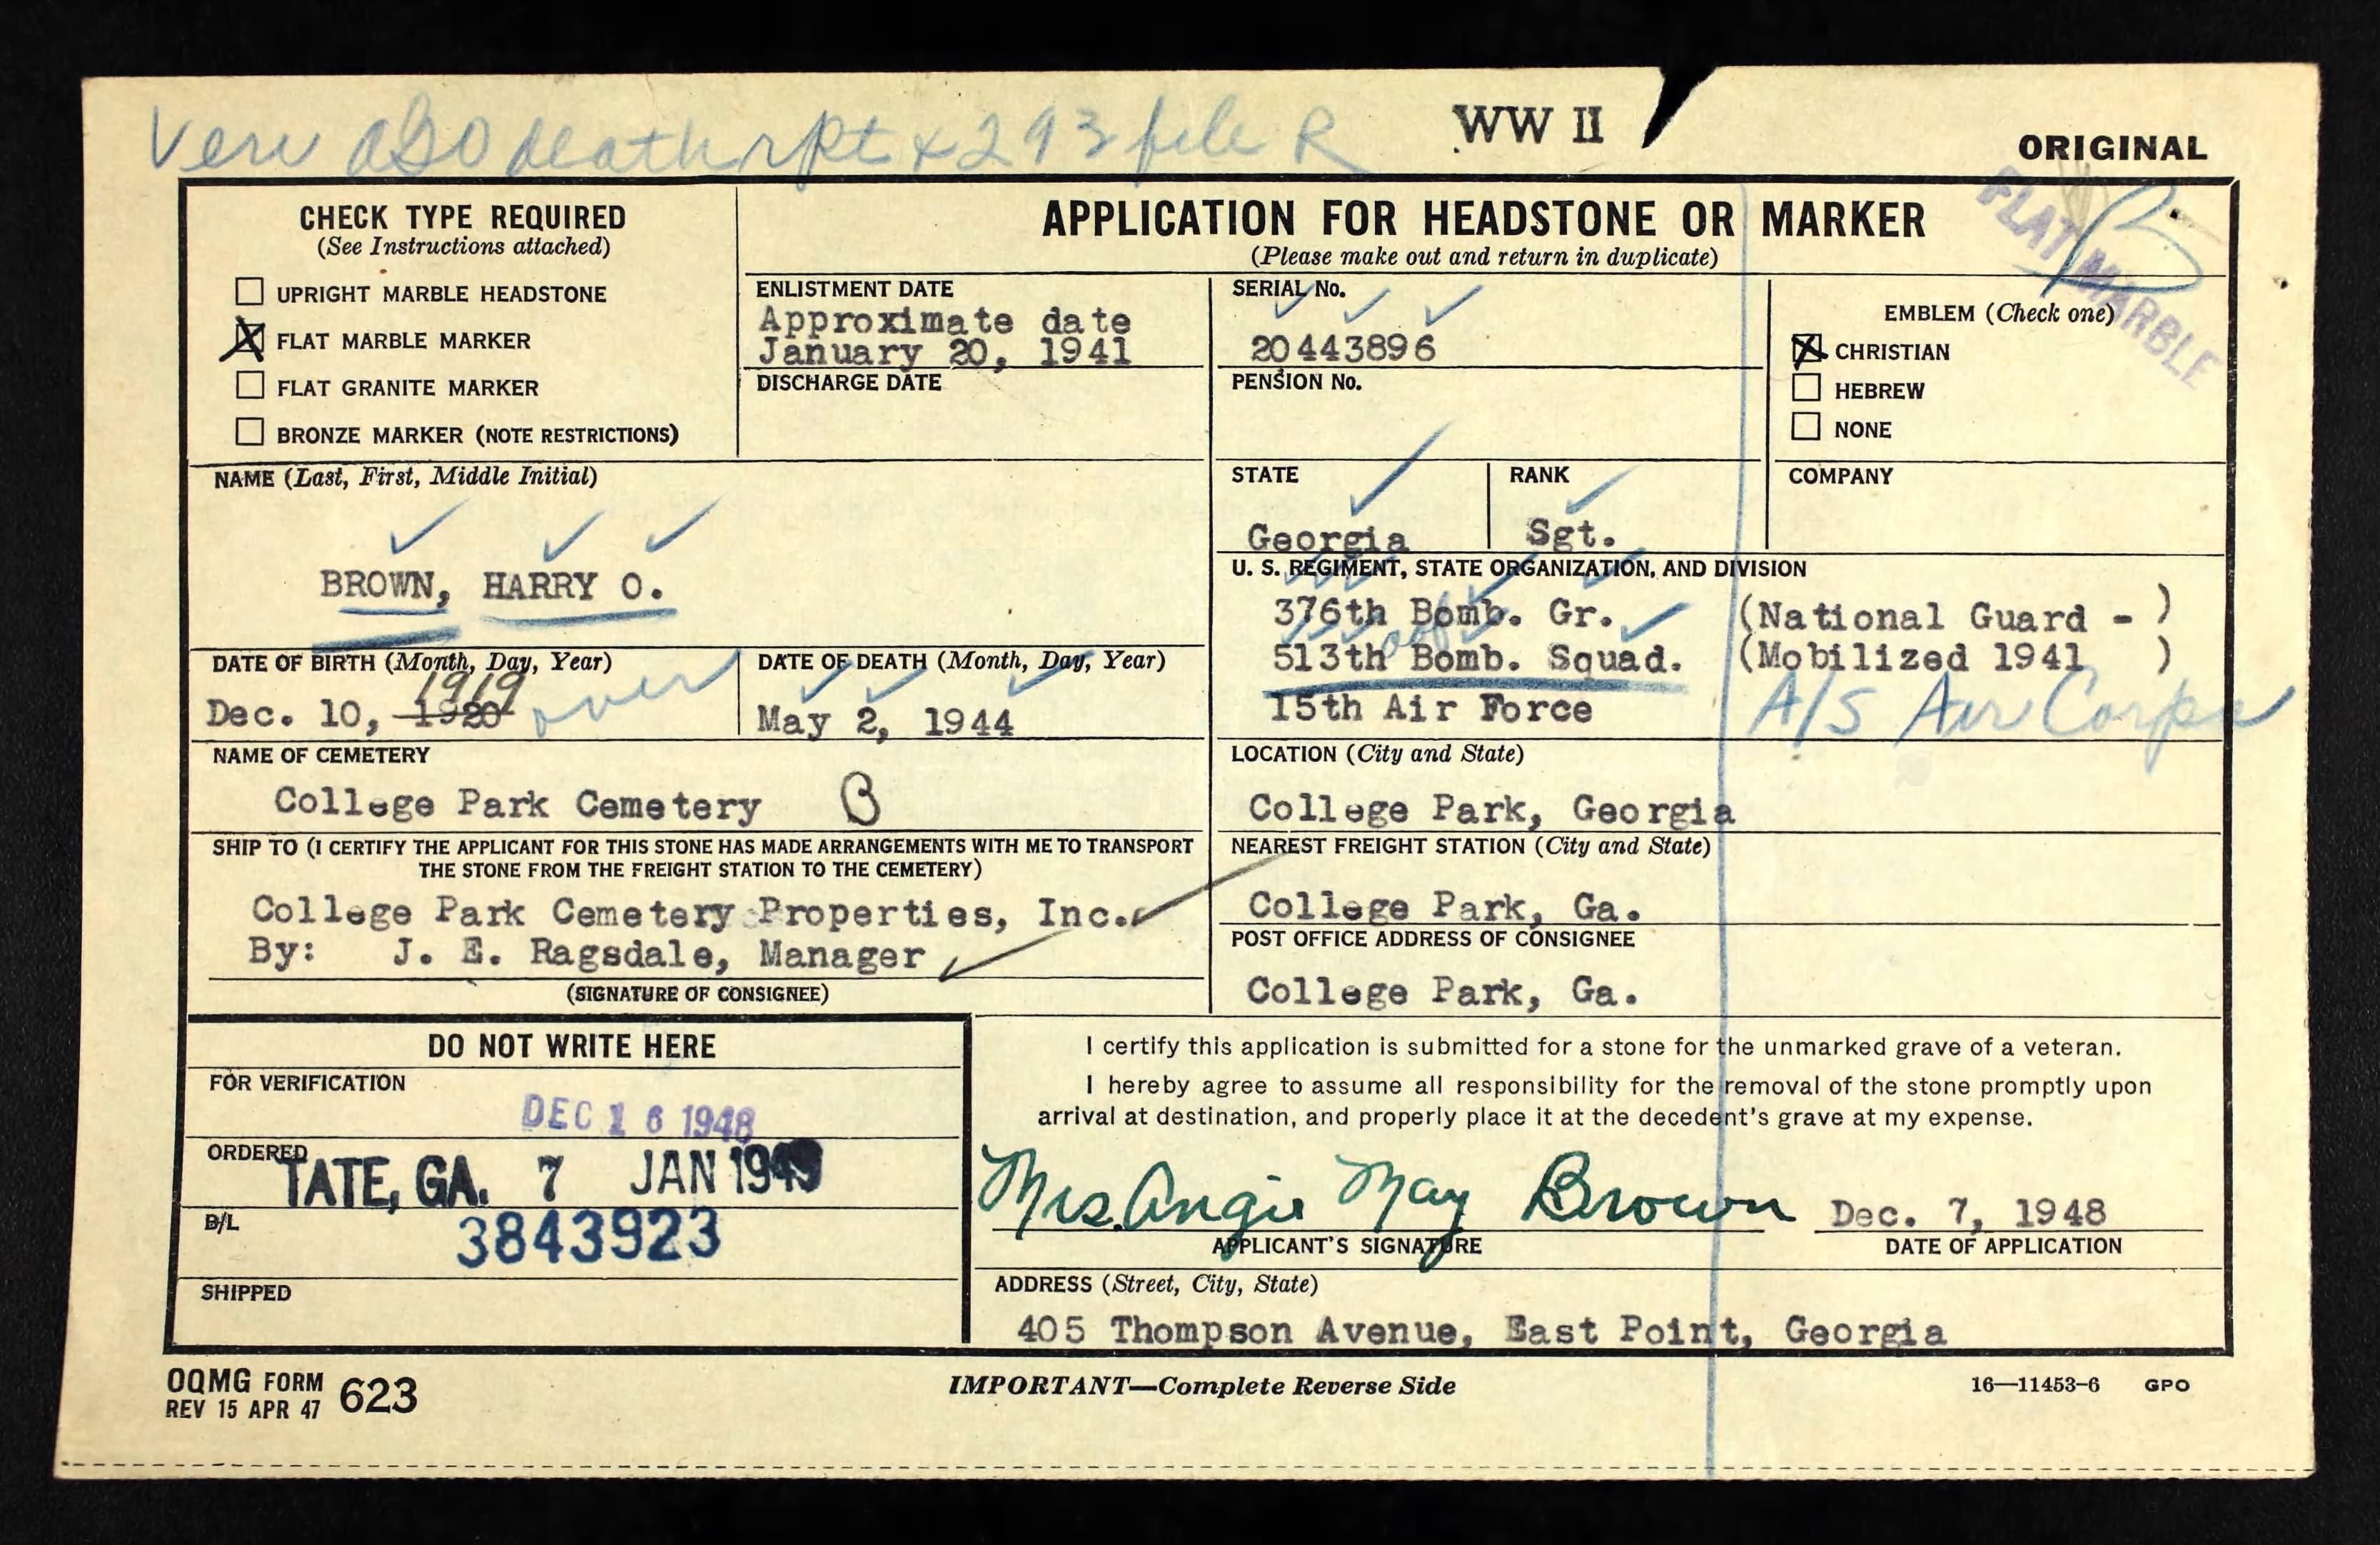 Veri AGO death rpt & 293 file R
WW II
ORIGINAL
CHECK TYPE REQUIRED
(See Instructions attached)
☐ UPRIGHT MARBLE HEADSTONE
☒ FLAT MARBLE MARKER
☐ FLAT GRANITE MARKER
☐ BRONZE MARKER (NOTE RESTRICTIONS)
APPLICATION FOR HEADSTONE OR MARKER
(Please make out and return in duplicate)
FLAT MARBLE
B
ENLISTMENT DATE
Approximate date
January 20, 1941
DISCHARGE DATE
SERIAL No.
20443896
PENSION No.
EMBLEM (Check one)
☒ CHRISTIAN
☐ HEBREW
☐ NONE
NAME (Last, First, Middle Initial)
BROWN, HARRY O.
STATE
Georgia
RANK
Sgt.
COMPANY
U. S. REGIMENT, STATE ORGANIZATION, AND DIVISION
376th Bomb. Gr. (National Guard - )
513th Bomb. Squad. (Mobilized 1941 )
15th Air Force A/S Air Corps
DATE OF BIRTH (Month, Day, Year)
1919
Dec. 10, 1920 over
DATE OF DEATH (Month, Day, Year)
May 2, 1944
NAME OF CEMETERY
College Park Cemetery B
LOCATION (City and State)
College Park, Georgia
SHIP TO (I CERTIFY THE APPLICANT FOR THIS STONE HAS MADE ARRANGEMENTS WITH ME TO TRANSPORT
THE STONE FROM THE FREIGHT STATION TO THE CEMETERY)
College Park Cemetery Properties, Inc.
By: J. E. Ragsdale, Manager
(SIGNATURE OF CONSIGNEE)
NEAREST FREIGHT STATION (City and State)
College Park, Ga.
POST OFFICE ADDRESS OF CONSIGNEE
College Park, Ga.
DO NOT WRITE HERE
FOR VERIFICATION
DEC 16 1948
ORDERED
TATE, GA. 7 JAN 1949
B/L
3843923
SHIPPED
I certify this application is submitted for a stone for the unmarked grave of a veteran.
I hereby agree to assume all responsibility for the removal of the stone promptly upon
arrival at destination, and properly place it at the decedent's grave at my expense.
Mrs. Angie May Brown Dec. 7, 1948
APPLICANT'S SIGNATURE DATE OF APPLICATION
ADDRESS (Street, City, State)
405 Thompson Avenue, East Point, Georgia
OQMG FORM 623
REV 15 APR 47
IMPORTANT—Complete Reverse Side
16—11453-6 GPO